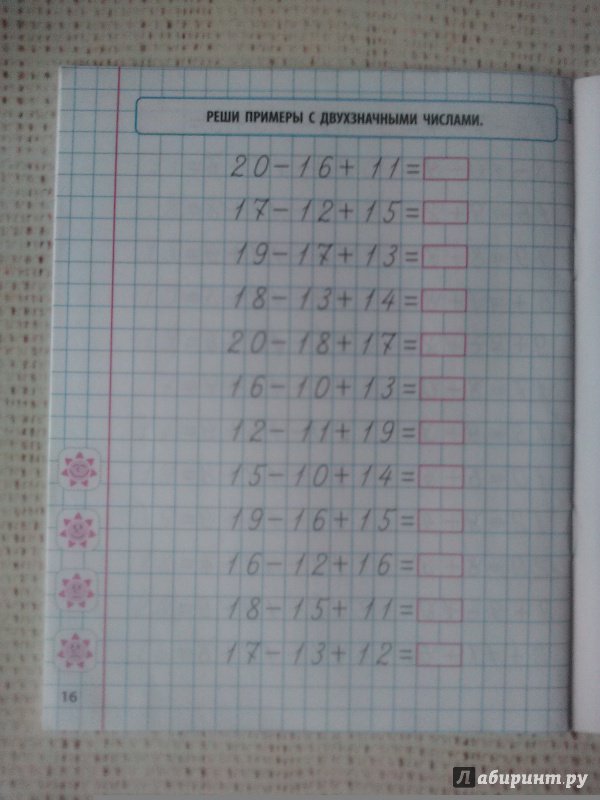 РЕШИ ПРИМЕРЫ С ДВУХЗНАЧНЫМИ ЧИСЛАМИ.
20-16+11=
17-12+15=
19-17+13=
18-13+14=
20-18+17=
16-10+13=
12-11+19=
15-10+14=
19-16+15=
16-12+16=
18-15+11=
17-13+12=
16
Лабиринт.ру